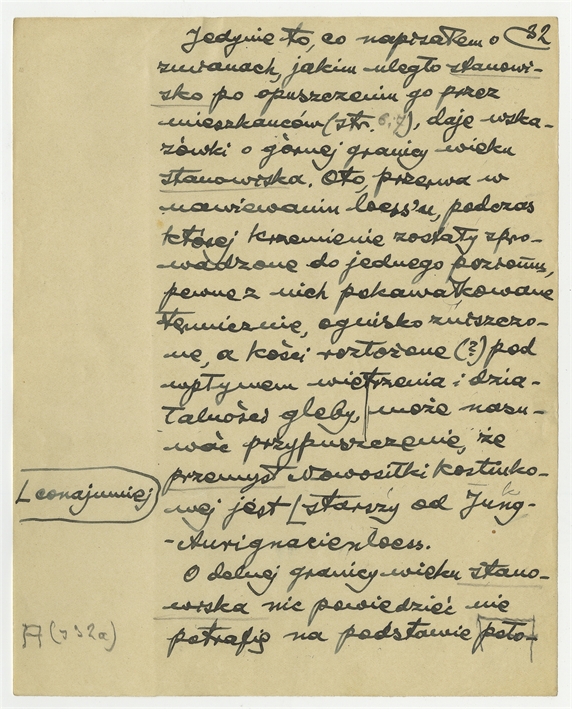 32
Jedynie to, co napisałem o
zmianach, jakim uległo stanowi-
sko po opuszczeniu go przez
mieszkańców (str. 6,7), daje wska-
zówki o górnej granicy wieku
stanowiska. Oto, przerwa w
nawiewaniu loess'u, podczas
której krzemienie zostały spro-
wadzone do jednego poziomu,
pewne z nich pokawałkowane
termicznie, ognisko zniszczo-
ne, a kości rozłożone (?) pod
wpływem wietrzenia i dzia-
łalności gleby, może nasu-
wać przypuszczenie, że
przemysł Nowosiłki Kostiuko-
[conajmniej
wej jest [starszy od Jung-
-Aurignacienloess.
O dolnej granicy wieku stano-
wiska nic powiedzieć nie
potrafię na podstawie poło-
(s 32a)